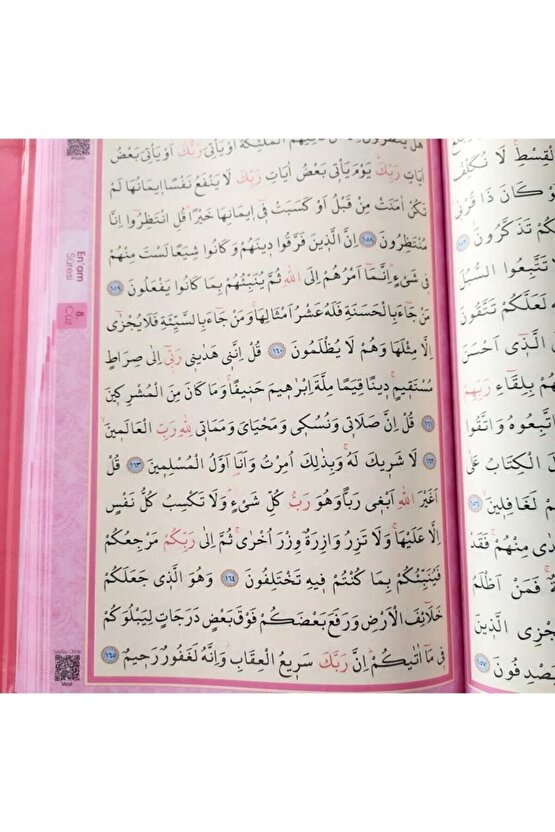 لْقِسْطِ لَا نُكَلِّفُ
وْ كَانَ ذَا قُرْبٰى
كُمْ تَذَكَّرُونَ
تَتَّبِعُوا السُّبُلَ
لَعَلَّكُمْ تَتَّقُونَ
الَّذٖٓى اَحْسَنَ
بِلِقَٓاءِ رَبِّهِمْ
اتَّبِعُوهُ وَاتَّقُوا
الْكِتَابُ عَلٰى
لَغَافِلٖينَ ١٥٦
دٰى مِنْهُمْ فَقَدْ
فَمَنْ اَظْلَمُ
جْزِى الَّذٖينَ
صْدِفُونَ ١٥٧
هَلْ يَنْظُرُونَ اِلَّٓا اَنْ تَأْتِيَهُمُ الْمَلٰٓئِكَةُ اَوْ يَأْتِىَ رَبُّكَ اَوْ يَأْتِىَ بَعْضُ
اٰيَاتِ رَبِّكَ يَوْمَ يَأْتٖى بَعْضُ اٰيَاتِ رَبِّكَ لَا يَنْفَعُ نَفْسًا اٖيمَانُهَا لَمْ
تَكُنْ اٰمَنَتْ مِنْ قَبْلُ اَوْ كَسَبَتْ فٖٓى اٖيمَانِهَا خَيْرًا قُلِ انْتَظِرُٓوا اِنَّا
مُنْتَظِرُونَ ١٥٨ اِنَّ الَّذٖينَ فَرَّقُوا دٖينَهُمْ وَكَانُوا شِيَعًا لَسْتَ مِنْهُمْ
فٖى شَىْءٍ اِنَّمَٓا اَمْرُهُمْ اِلَى اللّٰهِ ثُمَّ يُنَبِّئُهُمْ بِمَا كَانُوا يَفْعَلُونَ ١٥٩
مَنْ جَٓاءَ بِالْحَسَنَةِ فَلَهُ عَشْرُ اَمْثَالِهَا وَمَنْ جَٓاءَ بِالسَّيِّئَةِ فَلَا يُجْزٰٓى
اِلَّا مِثْلَهَا وَهُمْ لَا يُظْلَمُونَ ١٦٠ قُلْ اِنَّنٖى هَدٰينٖى رَبّٖٓى اِلٰى صِرَاطٍ
مُسْتَقٖيمٍ دٖينًا قِيَمًا مِلَّةَ اِبْرٰهٖيمَ حَنٖيفًا وَمَا كَانَ مِنَ الْمُشْرِكٖينَ
١٦١ قُلْ اِنَّ صَلَاتٖى وَنُسُكٖى وَمَحْيَاىَ وَمَمَاتٖى لِلّٰهِ رَبِّ الْعَالَمٖينَ
١٦٢ لَا شَرٖيكَ لَهُ وَبِذٰلِكَ اُمِرْتُ وَاَنَا۬ اَوَّلُ الْمُسْلِمٖينَ ١٦٣ قُلْ
اَغَيْرَ اللّٰهِ اَبْغٖى رَبًّا وَهُوَ رَبُّ كُلِّ شَىْءٍ وَلَا تَكْسِبُ كُلُّ نَفْسٍ
اِلَّا عَلَيْهَا وَلَا تَزِرُ وَازِرَةٌ وِزْرَ اُخْرٰى ثُمَّ اِلٰى رَبِّكُمْ مَرْجِعُكُمْ
فَيُنَبِّئُكُمْ بِمَا كُنْتُمْ فٖيهِ تَخْتَلِفُونَ ١٦٤ وَهُوَ الَّذٖى جَعَلَكُمْ
خَلَٓائِفَ الْاَرْضِ وَرَفَعَ بَعْضَكُمْ فَوْقَ بَعْضٍ دَرَجَاتٍ لِيَبْلُوَكُمْ
فٖى مَٓا اٰتٰيكُمْ اِنَّ رَبَّكَ سَرٖيعُ الْعِقَابِ وَاِنَّهُ لَغَفُورٌ رَحٖيمٌ ١٦٥
En'am
Suresi
8.
Cüz
Meal